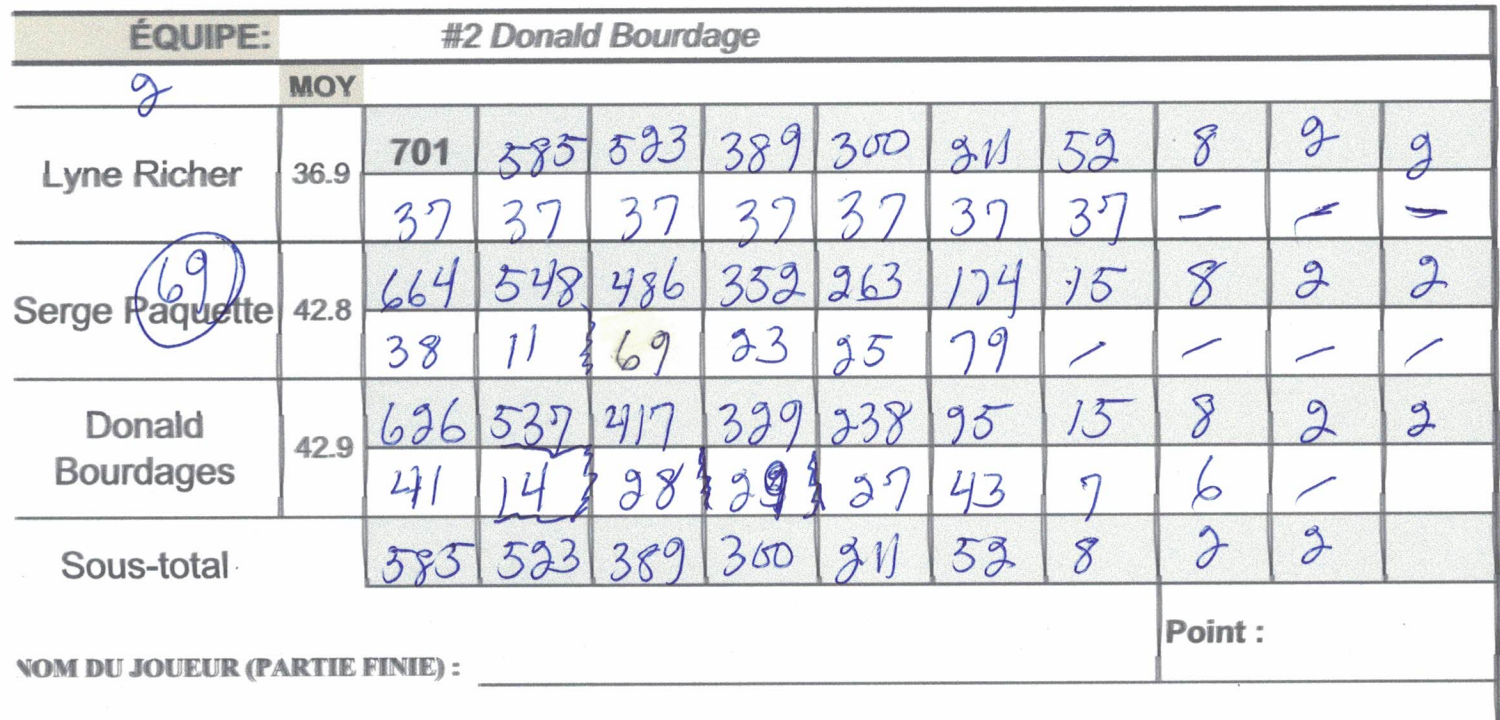 ÉQUIPE: #2 Donald Bourdage
2 MOY
Lyne Richer 36.9 701 585 523 389 300 211 52 8 2 2
37 37 37 37 37 37 37 - - -
69
Serge Paquette 42.8 664 548 486 352 263 174 15 8 2 2
38 11 69 23 25 79 - - - -
Donald Bourdages 42.9 626 537 417 329 238 95 15 8 2 2
41 14 28 29 27 43 7 6 -
Sous-total 585 523 389 300 211 52 8 2 2
Point :
NOM DU JOUEUR (PARTIE FINIE) :